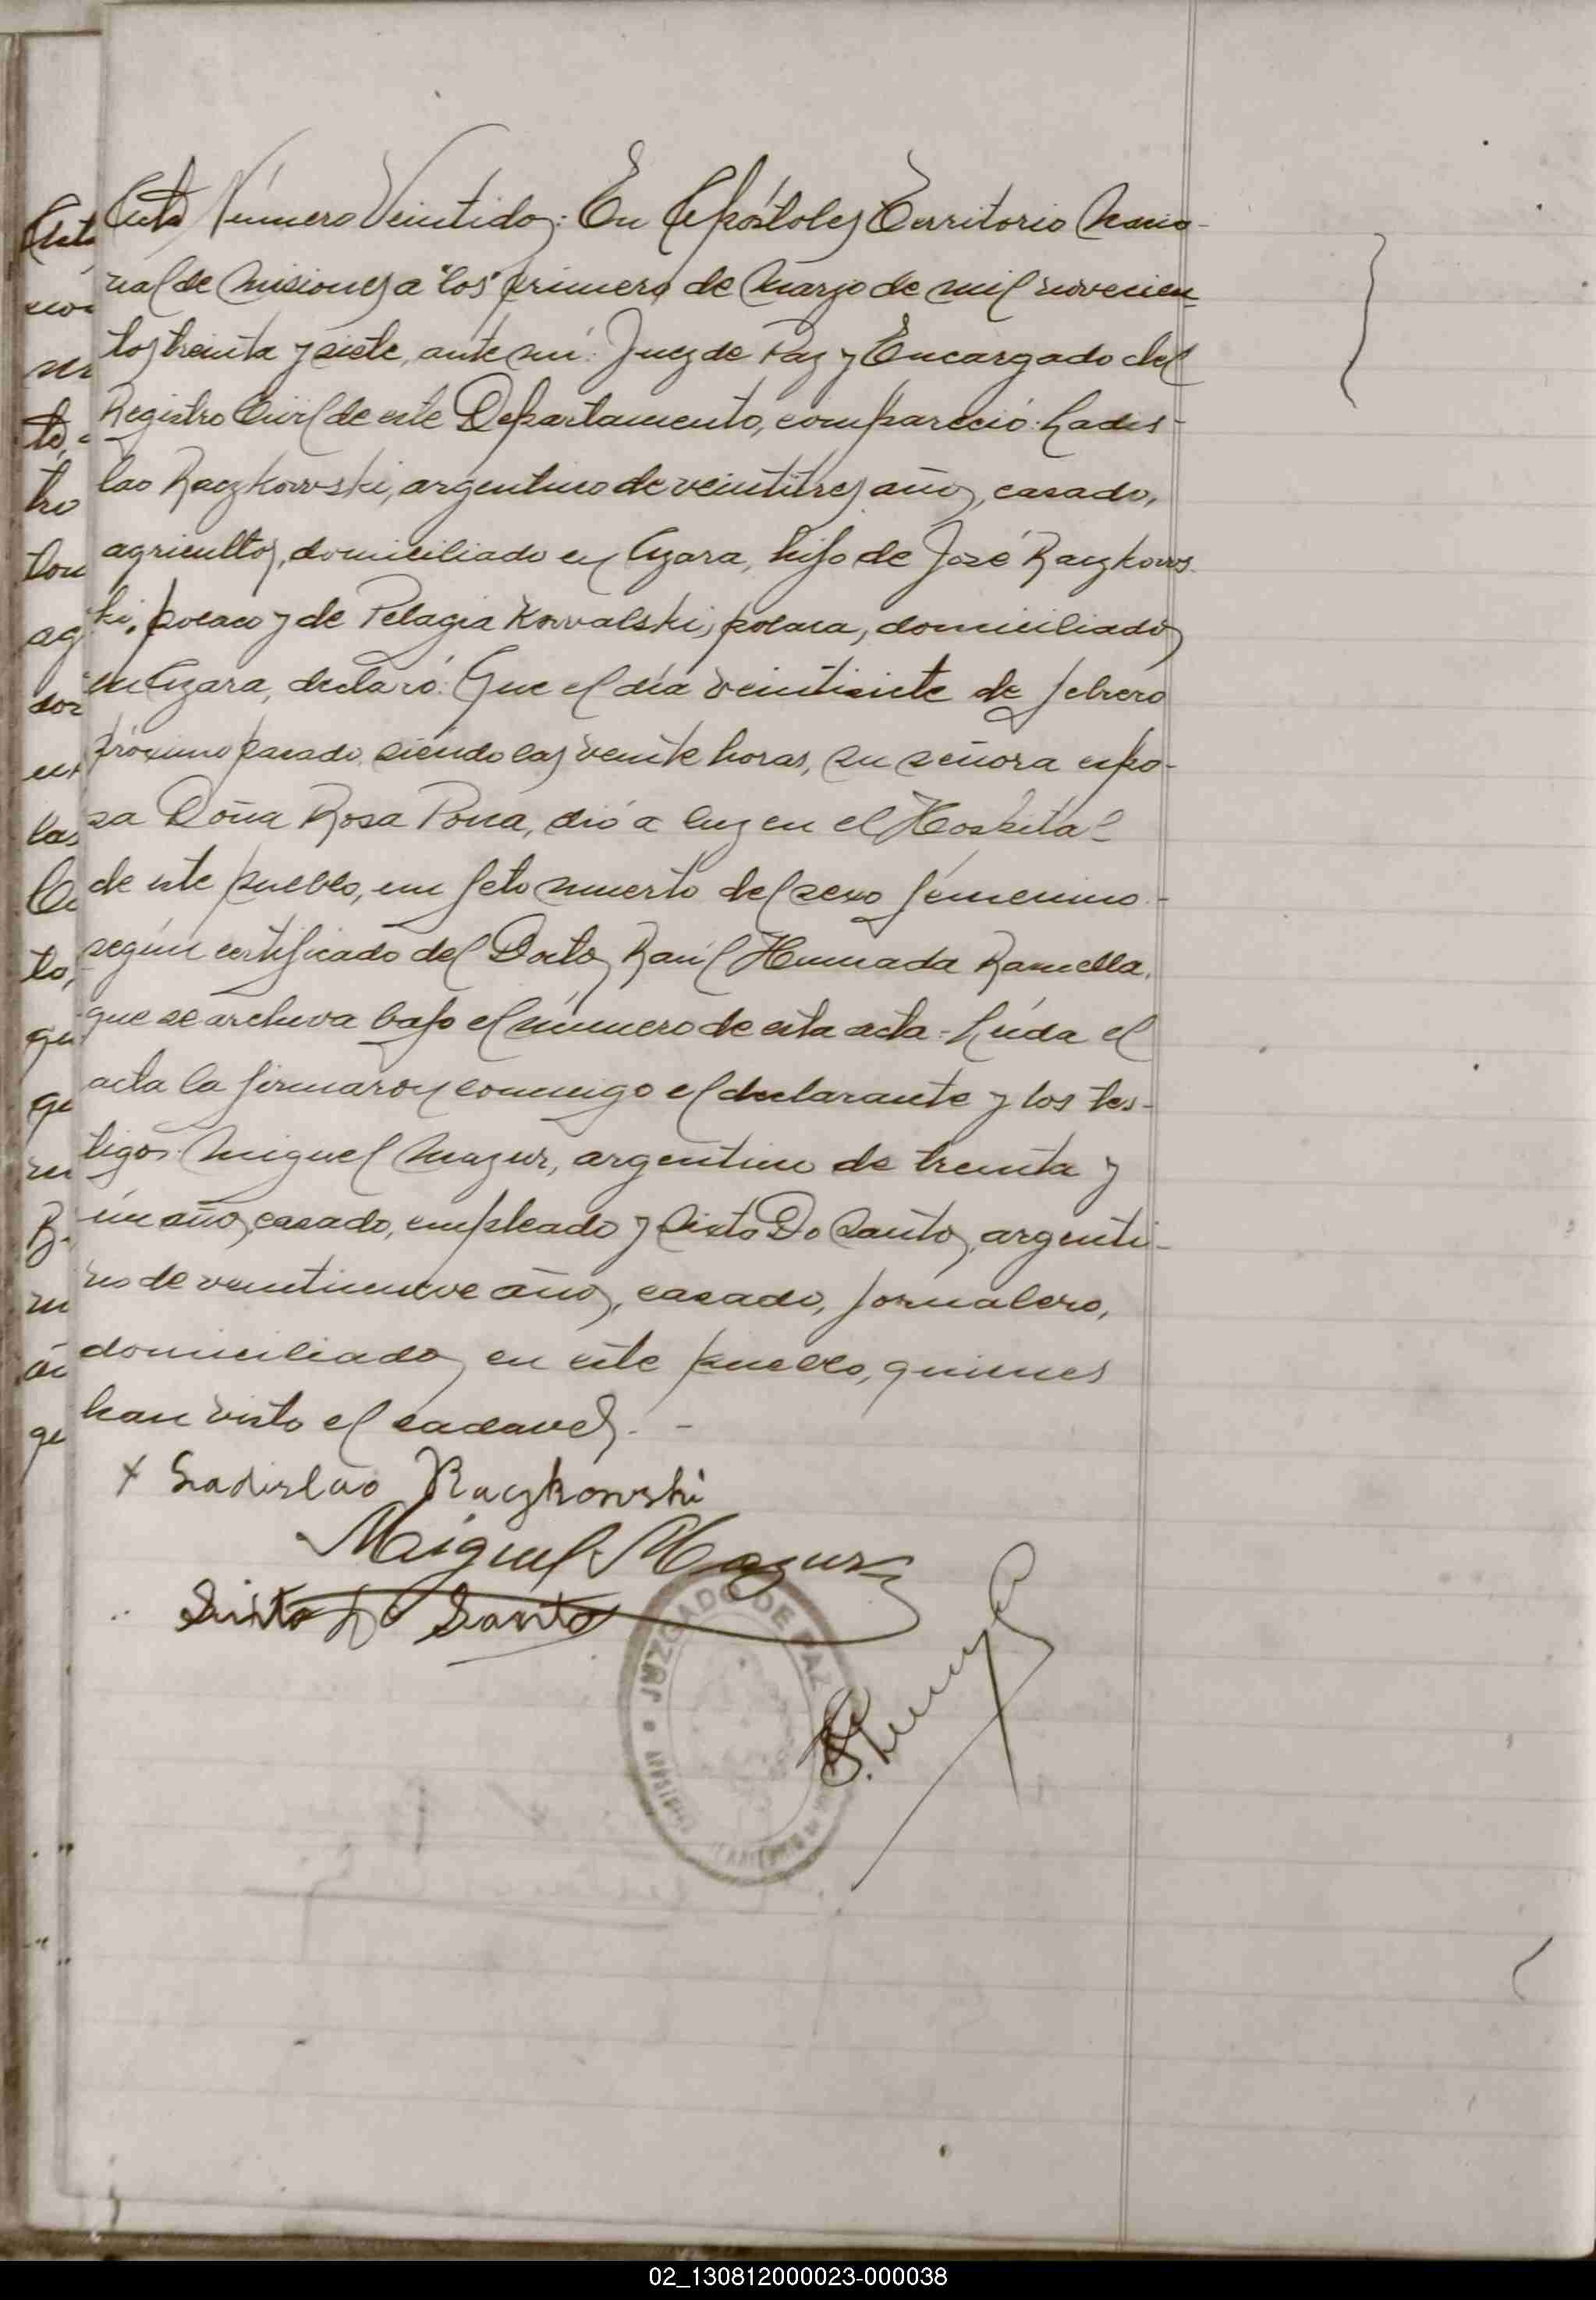 Acta Número Veintidos: En Apóstoles Territorio Nacio-
nal de Misiones a "los" primero de Marzo de mil novecien-
tos treinta y siete, ante mí: Juez de Paz y Encargado del
Registro Civil de este Departamento, compareció: Ladis-
lao Raczkowski, argentino de veintitres años, casado,
agricultor, domiciliado en Azara, hijo de José Raczkows-
ki, polaco y de Pelagia Kowalski, polaca, domiciliados
en Azara, declaró: Que el día veintisiete de febrero
próximo pasado siendo las veinte horas, su señora espo-
sa Doña Rosa dió a luz en el Hospital
de este pueblo, un feto muerto del sexo femenino -
según certificado del Doctor Raúl Ramella,
que se archiva bajo el número de esta acta.- Leída el
acta la firmaron conmigo el declarante y los tes-
tigos Miguel Mazur, argentino de treinta y
un años, casado, empleado y Sixto Do Santos, argenti-
no de veintinueve años, casado, jornalero,
domiciliados en este pueblo, quienes
han visto el cadaver. -
x Ladislao Raczkowski
Miguel Mazur
Sixto Do Santo
JUZGADO DE PAZ
APOSTOLES
02_130812000023-000038